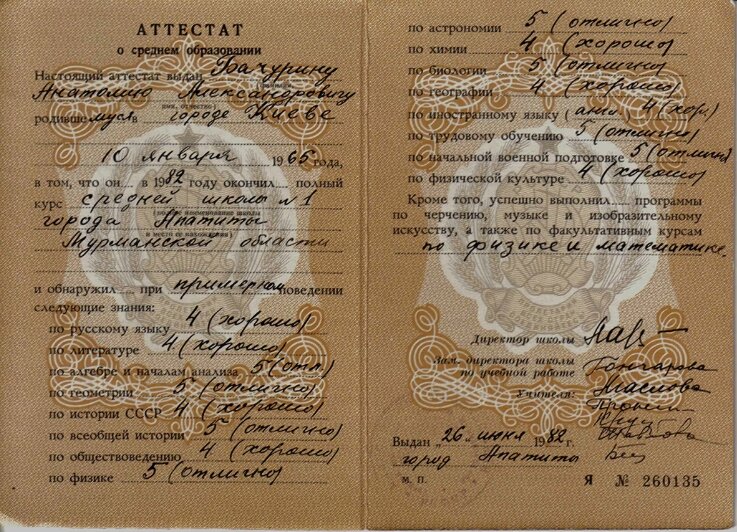 АТТЕСТАТ
о среднем образовании
Настоящий аттестат выдан Бачурину
(фамилия,
Анатолию Александровичу
имя, отчество)
родившемуся в городе Киеве
10 января 1965 года,
в том, что он в 1982 году окончил полный
курс средней школы №1
(полное наименование школы
города Апатиты
и место ее нахождения)
Мурманской области
и обнаружил при примерном поведении
следующие знания:
по русскому языку 4 (хорошо)
по литературе 4 (хорошо)
по алгебре и началам анализа 5 (отл)
по геометрии 5 (отлично)
по истории СССР 4 (хорошо)
по всеобщей истории 5 (отлично)
по обществоведению 4 (хорошо)
по физике 5 (отлично)
по астрономии 5 (отлично)
по химии 4 (хорошо)
по биологии 5 (отлично)
по географии 4 (хорошо)
по иностранному языку (англ) 4 (хор.)
по трудовому обучению 5 (отлично)
по начальной военной подготовке 5 (отлично)
по физической культуре 4 (хорошо)
Кроме того, успешно выполнил программы
по черчению, музыке и изобразительному
искусству, а также по факультативным курсам
по физике и математике.
Директор школы
Зам. директора школы
по учебной работе Гончарова
Учителя: Маслова
Выдан 26 июня 1982 г.
город Апатиты
М. П.
Я № 260135